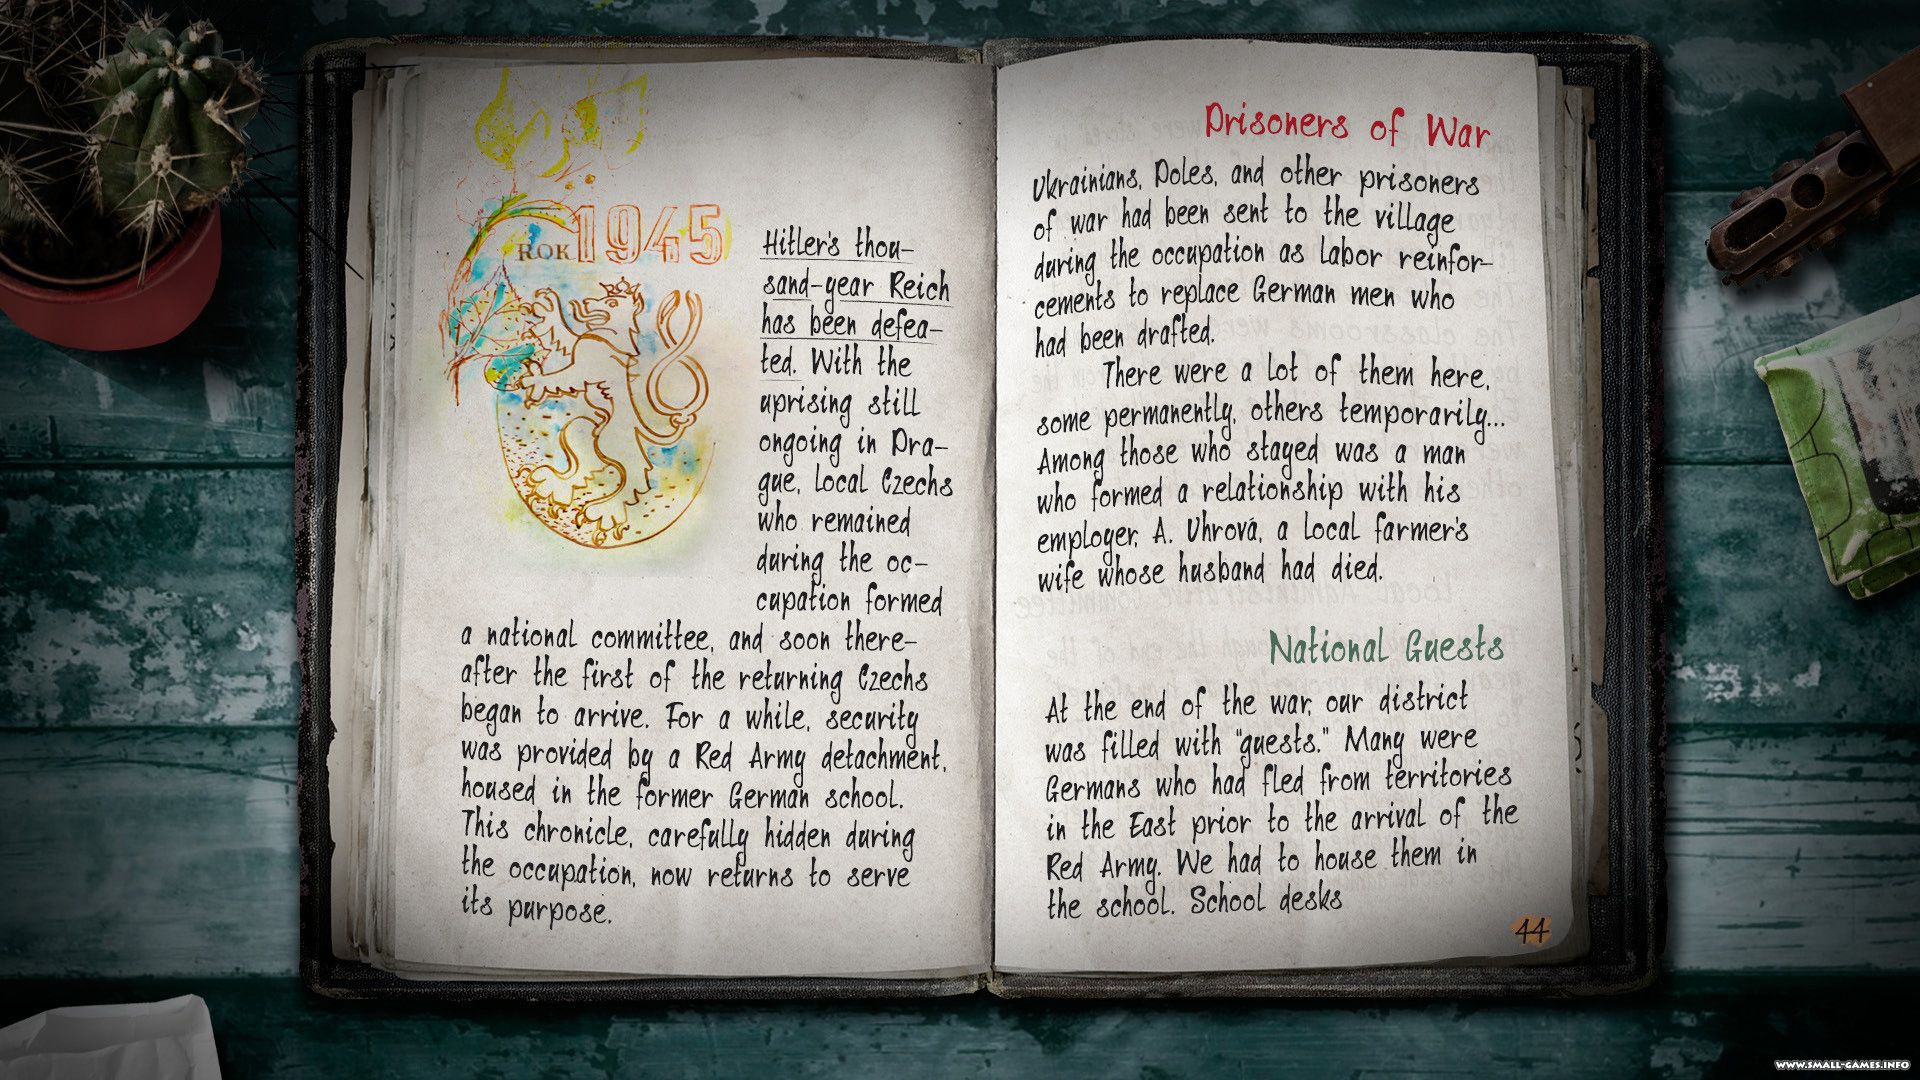 ROK 1945
Hitler's thou-
sand-year Reich
has been defea-
ted. With the
uprising still
ongoing in Pra-
gue, local Czechs
who remained
during the oc-
cupation formed
a national committee, and soon there-
after the first of the returning Czechs
began to arrive. For a while, security
was provided by a Red Army detachment,
housed in the former German school.
This chronicle, carefully hidden during
the occupation, now returns to serve
its purpose.
Prisoners of War
Ukrainians, Poles, and other prisoners
of war had been sent to the village
during the occupation as labor reinfor-
cements to replace German men who
had been drafted.
There were a lot of them here,
some permanently, others temporarily...
Among those who stayed was a man
who formed a relationship with his
employer, A. Uhrová, a local farmer's
wife whose husband had died.
National Guests
At the end of the war, our district
was filled with "guests." Many were
Germans who had fled from territories
in the East prior to the arrival of the
Red Army. We had to house them in
the school. School desks
44
WWW.SMALL-GAMES.INFO